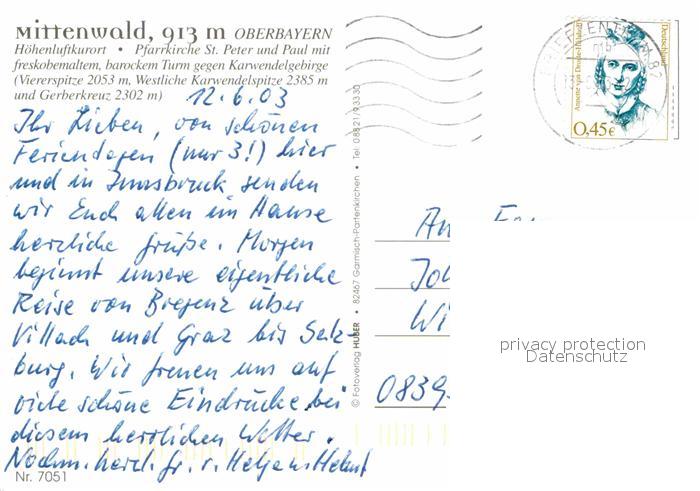 Mittenwald, 913 m OBERBAYERN
Höhenluftkurort • Pfarrkirche St. Peter und Paul mit
freskobemaltem, barockem Turm gegen Karwendelgebirge
(Viererspitze 2053 m, Westliche Karwendelspitze 2385 m
und Gerberkreuz 2302 m)
12.6.03
Ihr Lieben, von schönen
Ferientagen (nur 3!) hier
und in Innsbruck senden
wir Euch allen im Hause
herzliche Grüße. Morgen
beginnt unsere eigentliche
Reise von Bregenz über
Villach und Graz bis Salz-
burg. Wir freuen uns auf
viele schöne Eindrücke bei
diesem herrlichen Wetter.
Nochm. herzl. Gr. v. Helga u. Helmut
Nr. 7051
© Fotoverlag HUBER • 82467 Garmisch-Partenkirchen • Tel. 08821/93330
BRIEFZENTRUM 82
Annette von Droste-Hülshoff
Deutschland
0,45€
An
0839
privacy protection
Datenschutz